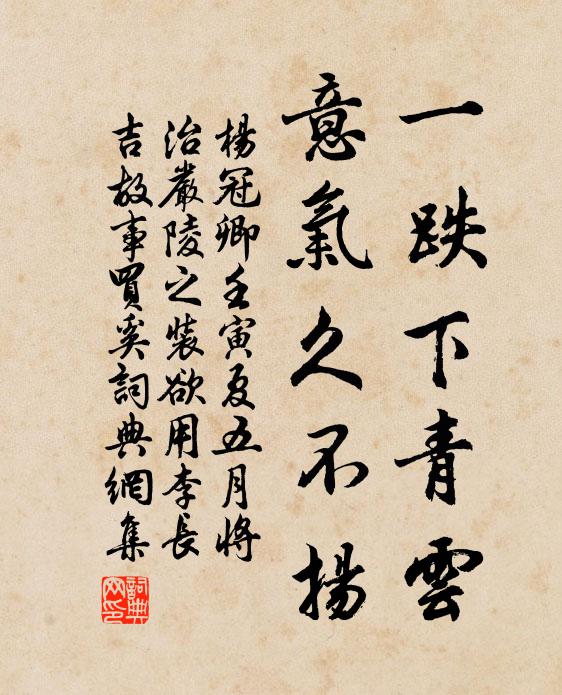 一跌下青雲
意氣久不揚
楊冠卿壬寅夏五月將
治嚴陵之裝欲用李長
吉故事買奚詞典網集
詞典
网印